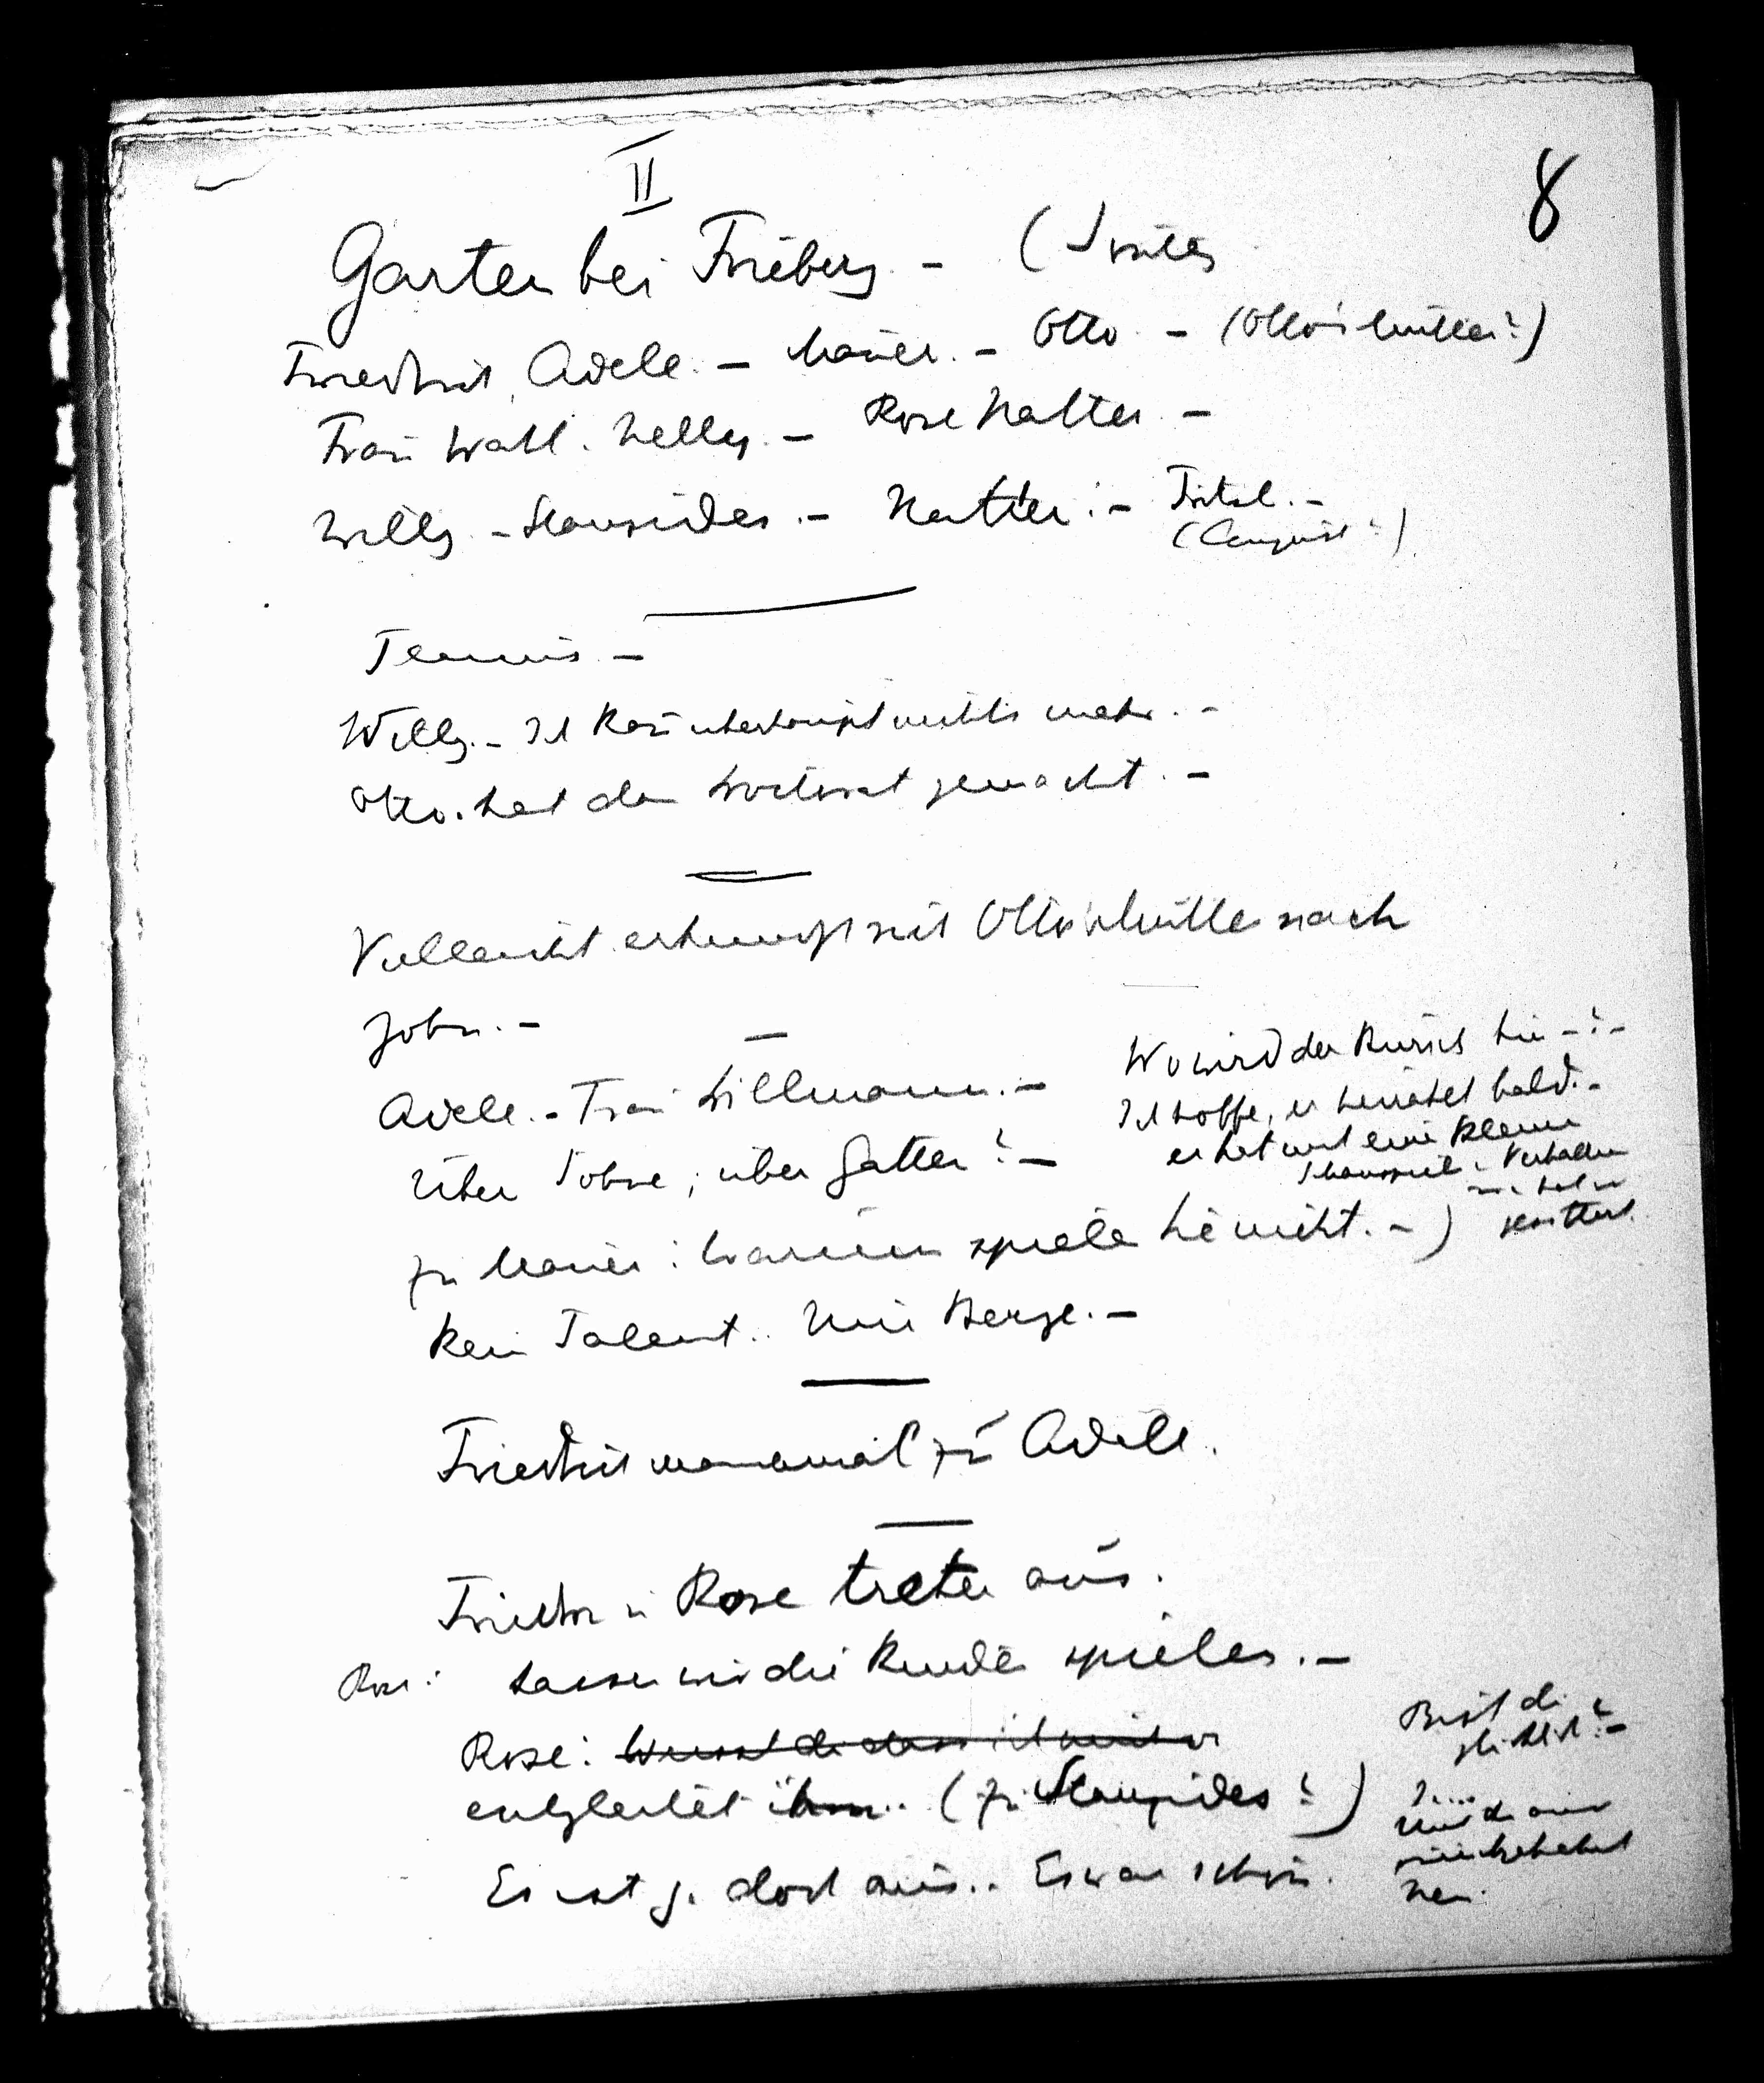 II
8
Garten bei Frieberg. – (
Friedrich, Adele. – Mauer. – Otto – (Otto's Mutter?)
Frau Wahl. Nelly. – Rose Natter –
Willy – Stanzides. – Natter. – Fritzl. –
(August?)
Tennis –
Willy. – Ich kann überhaupt nichts mehr. –
Otto. hat den gemacht. –
Vielleicht erkundigt sich Otto's Mutter nach
John. –
Adele. – Frau Willmann. –
Über Söhne, über Gatten? –
zu Mauer: Warum spielen Sie nicht. – )
Kein Talent.. Nur Berge. –
Wo wird der Bursch hin – ? –
Ich hoffe, er heiratet bald. –
er hat mit eine kleine
Schauspiel. Verhältn
Friedrich manchmal zu Adele.
Friedr u Rose treten aus.
Rose: Lassen wir die Kinder spielen. –
Rose: Weisst du dass ich
entgleitet ihm.. (zu Stanzides?)
Es ist ja doch aus.. Es war schön.
Bist du
glücklich? –
J....
Und du auch
nie gehabt